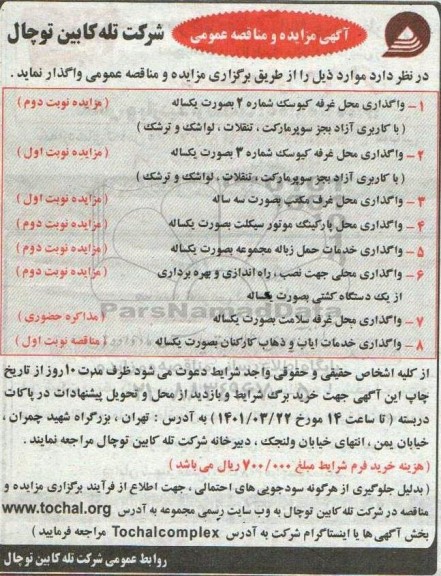 آگهی مزایده و مناقصه عمومی
شرکت تله کابین توچال
در نظر دارد موارد ذیل را از طریق برگزاری مزایده و مناقصه عمومی واگذار نماید .
۱ – واگذاری محل غرفه کیوسک شماره ۲ بصورت یکساله ( مزایده نوبت دوم )
( با کاربری آزاد بجز سوپرمارکت ، تنقلات ، لواشک و ترشک )
۲ – واگذاری محل غرفه کیوسک شماره ۳ بصورت یکساله ( مزایده نوبت اول )
( با کاربری آزاد بجز سوپرمارکت ، تنقلات ، لواشک و ترشک )
۳ – واگذاری محل غرف مکتب بصورت سه ساله ( مزایده نوبت اول )
۴ – واگذاری محل پارکینگ موتور سیکلت بصورت یکساله ( مزایده نوبت دوم )
۵ – واگذاری خدمات حمل زباله مجموعه بصورت یکساله ( مزایده نوبت دوم )
۶ – واگذاری محلی جهت نصب ، راه اندازی و بهره برداری ( مزایده نوبت دوم )
از یک دستگاه کشتی بصورت یکساله
ParsNamadData
۷ – واگذاری محل غرفه سلامت بصورت یکساله ( مذاکره حضوری )
۸ – واگذاری خدمات ایاب و ذهاب کارکنان بصورت یکساله ( مناقصه نوبت اول )
از کلیه اشخاص حقیقی و حقوقی واجد شرایط دعوت می شود ظرف مدت ۱۰ روز از تاریخ
چاپ این آگهی جهت خرید برگ شرایط و بازدید از محل و تحویل پیشنهادات در پاکات
دربسته ( تا ساعت ۱۴ مورخ ۱۴۰۱/۰۳/۲۲ ) به آدرس : تهران ، بزرگراه شهید چمران ،
خیابان یمن ، انتهای خیابان ولنجک ، دبیرخانه شرکت تله کابین توچال مراجعه نمایند .
( هزینه خرید فرم شرایط مبلغ ۷۰۰/۰۰۰ ریال می باشد )
( بدلیل جلوگیری از هرگونه سودجویی های احتمالی ، جهت اطلاع از فرآیند برگزاری مزایده و
مناقصه در شرکت تله کابین توچال به وب سایت رسمی مجموعه به آدرس www.tochal.org
بخش آگهی ها یا اینستاگرام شرکت به آدرس Tochalcomplex مراجعه فرمایید )
روابط عمومی شرکت تله کابین توچال